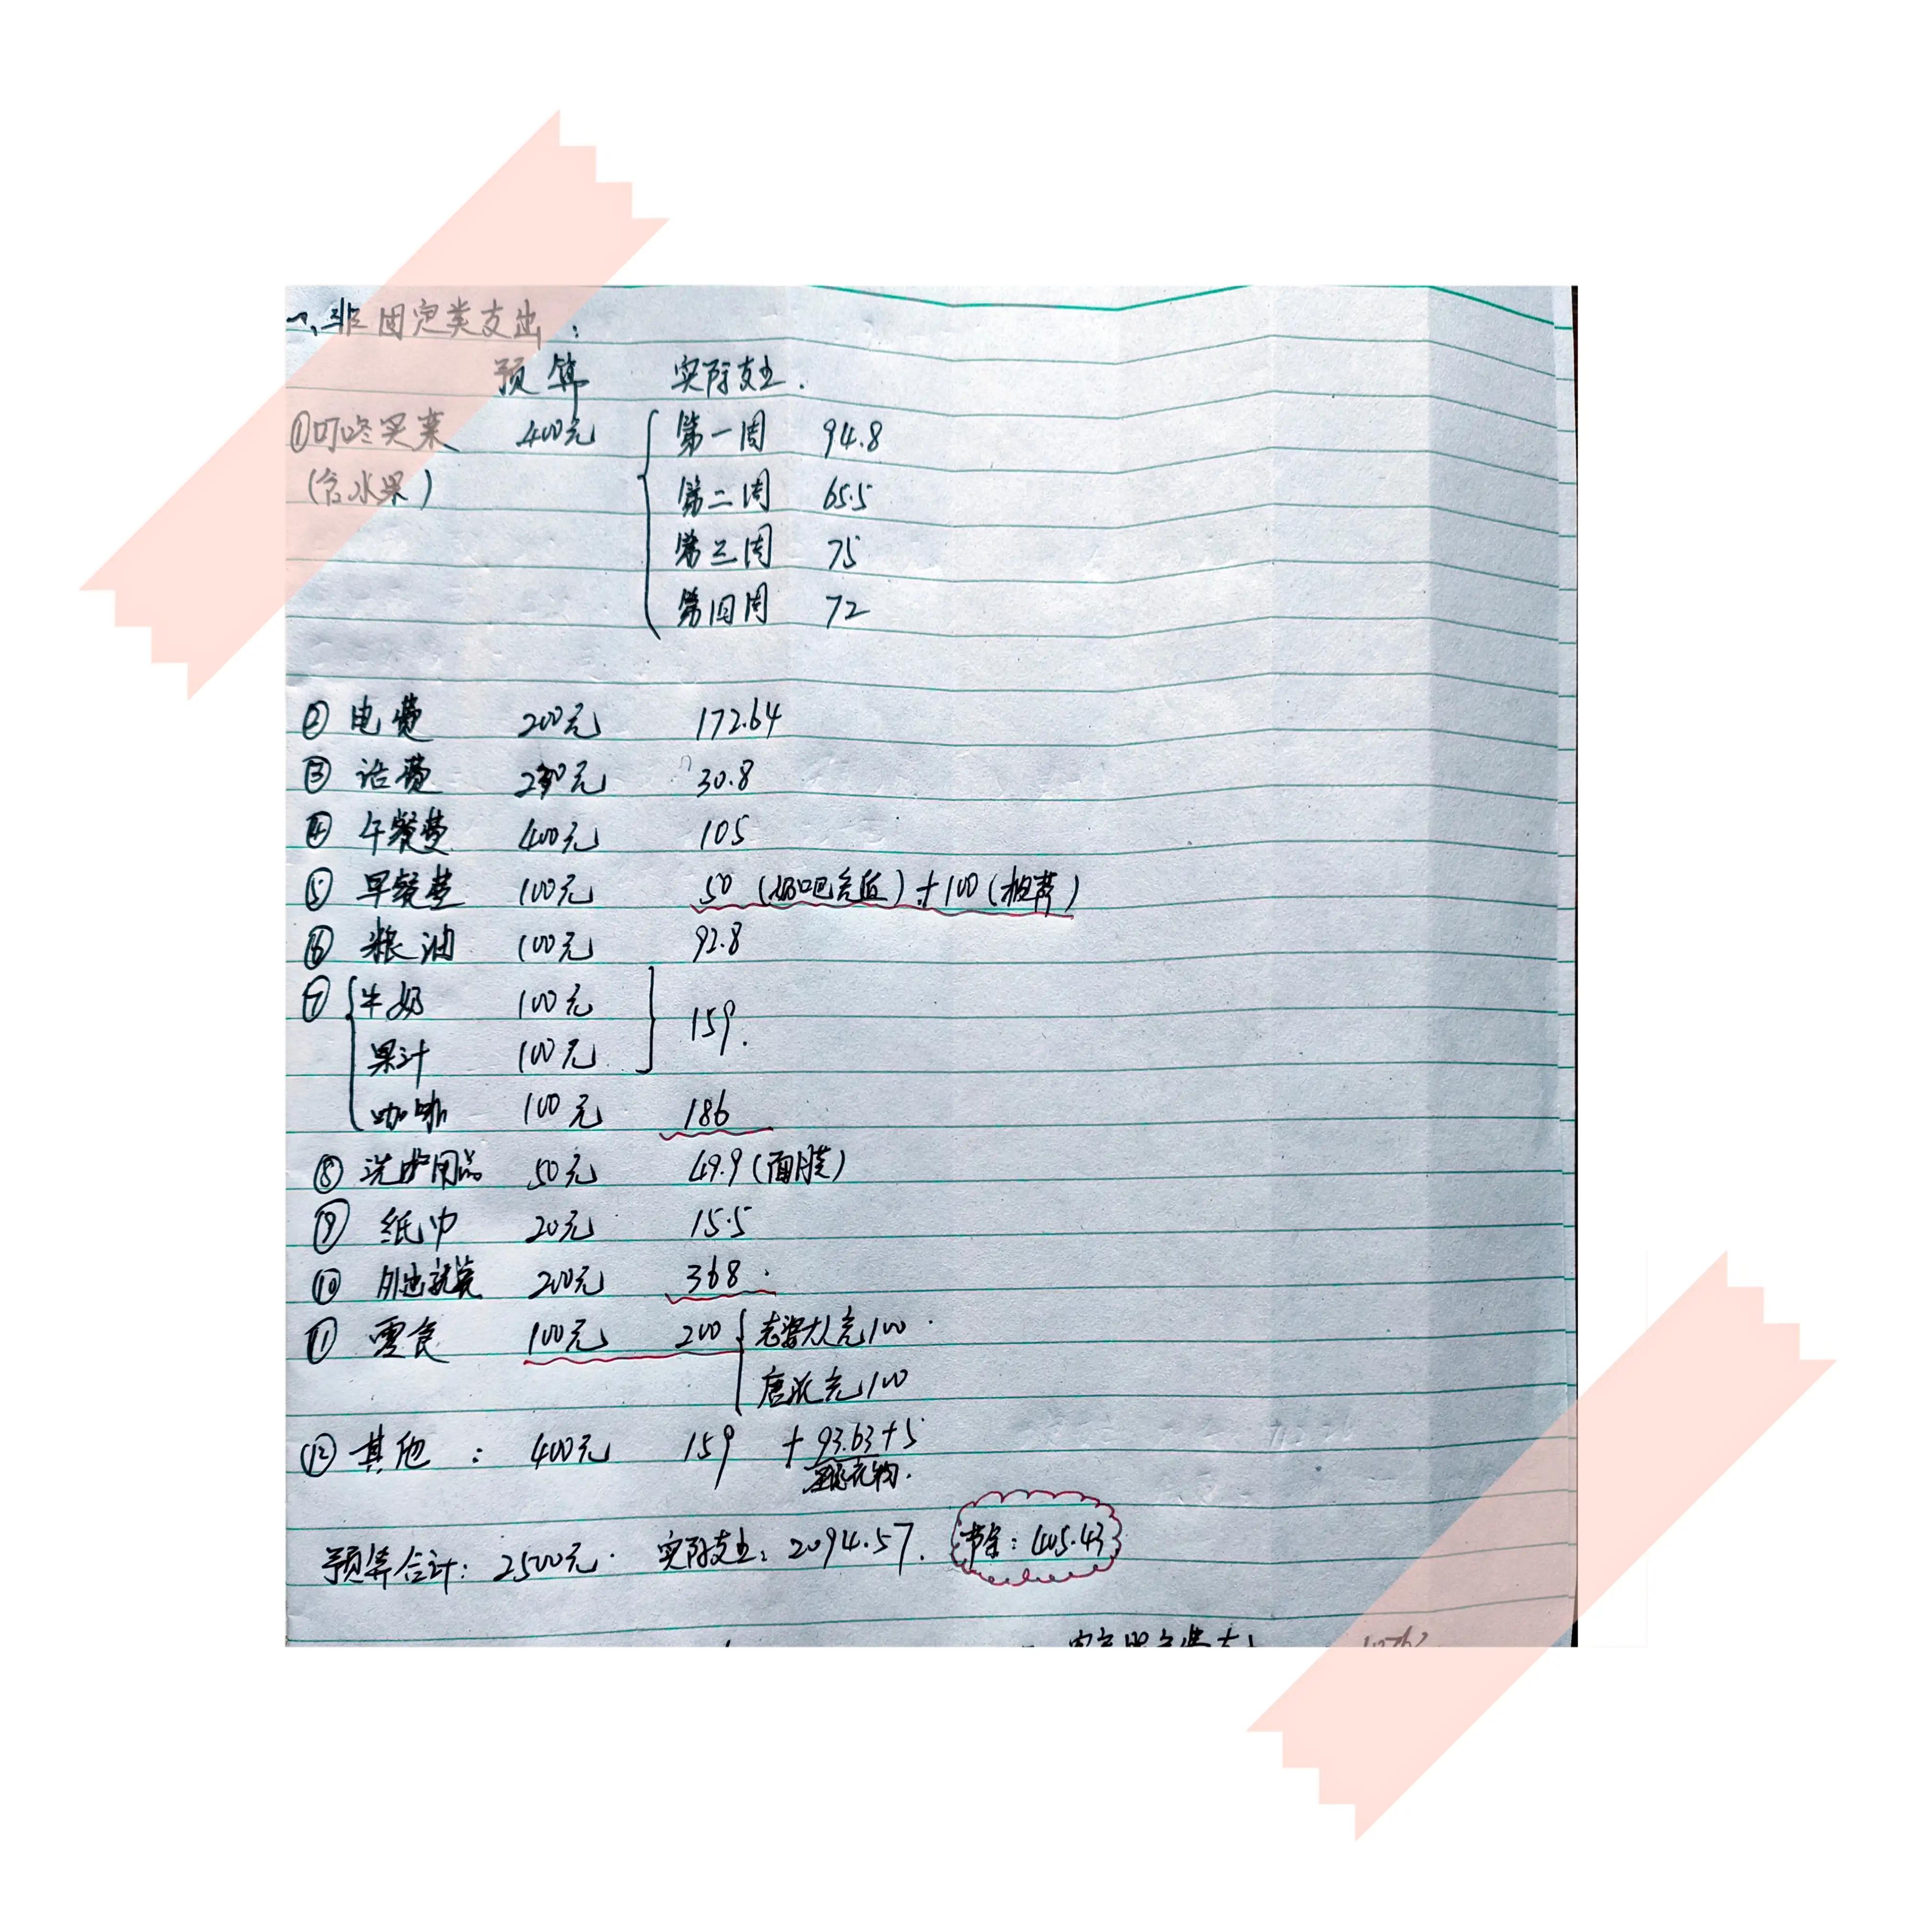 一、非固定类支出:
预算 实际支出.
①叮咚买菜 400元 第一周 94.8
(含水果) 第二周 65.5
第三周 75
第四周 72
② 电费 200元 172.64
③ 话费 230元 30.8
④ 午餐费 400元 105
⑤ 早餐费 100元 50 (奶吧充值) + 100 (推荐)
⑥ 粮油 100元 92.8
⑦ 牛奶 100元 159.
果汁 100元
咖啡 100元 186
⑧ 洗护用品 50元 49.9 (面膜)
⑨ 纸巾 20元 15.5
⑩ 外出就餐 200元 368.
⑪ 零食 100元 200 老婆大人充100.
唐派充100
⑫ 其他: 400元 159 + 93.63+5
衣物.
预算合计: 2500元. 实际支出: 2094.57. 节余: 405.43